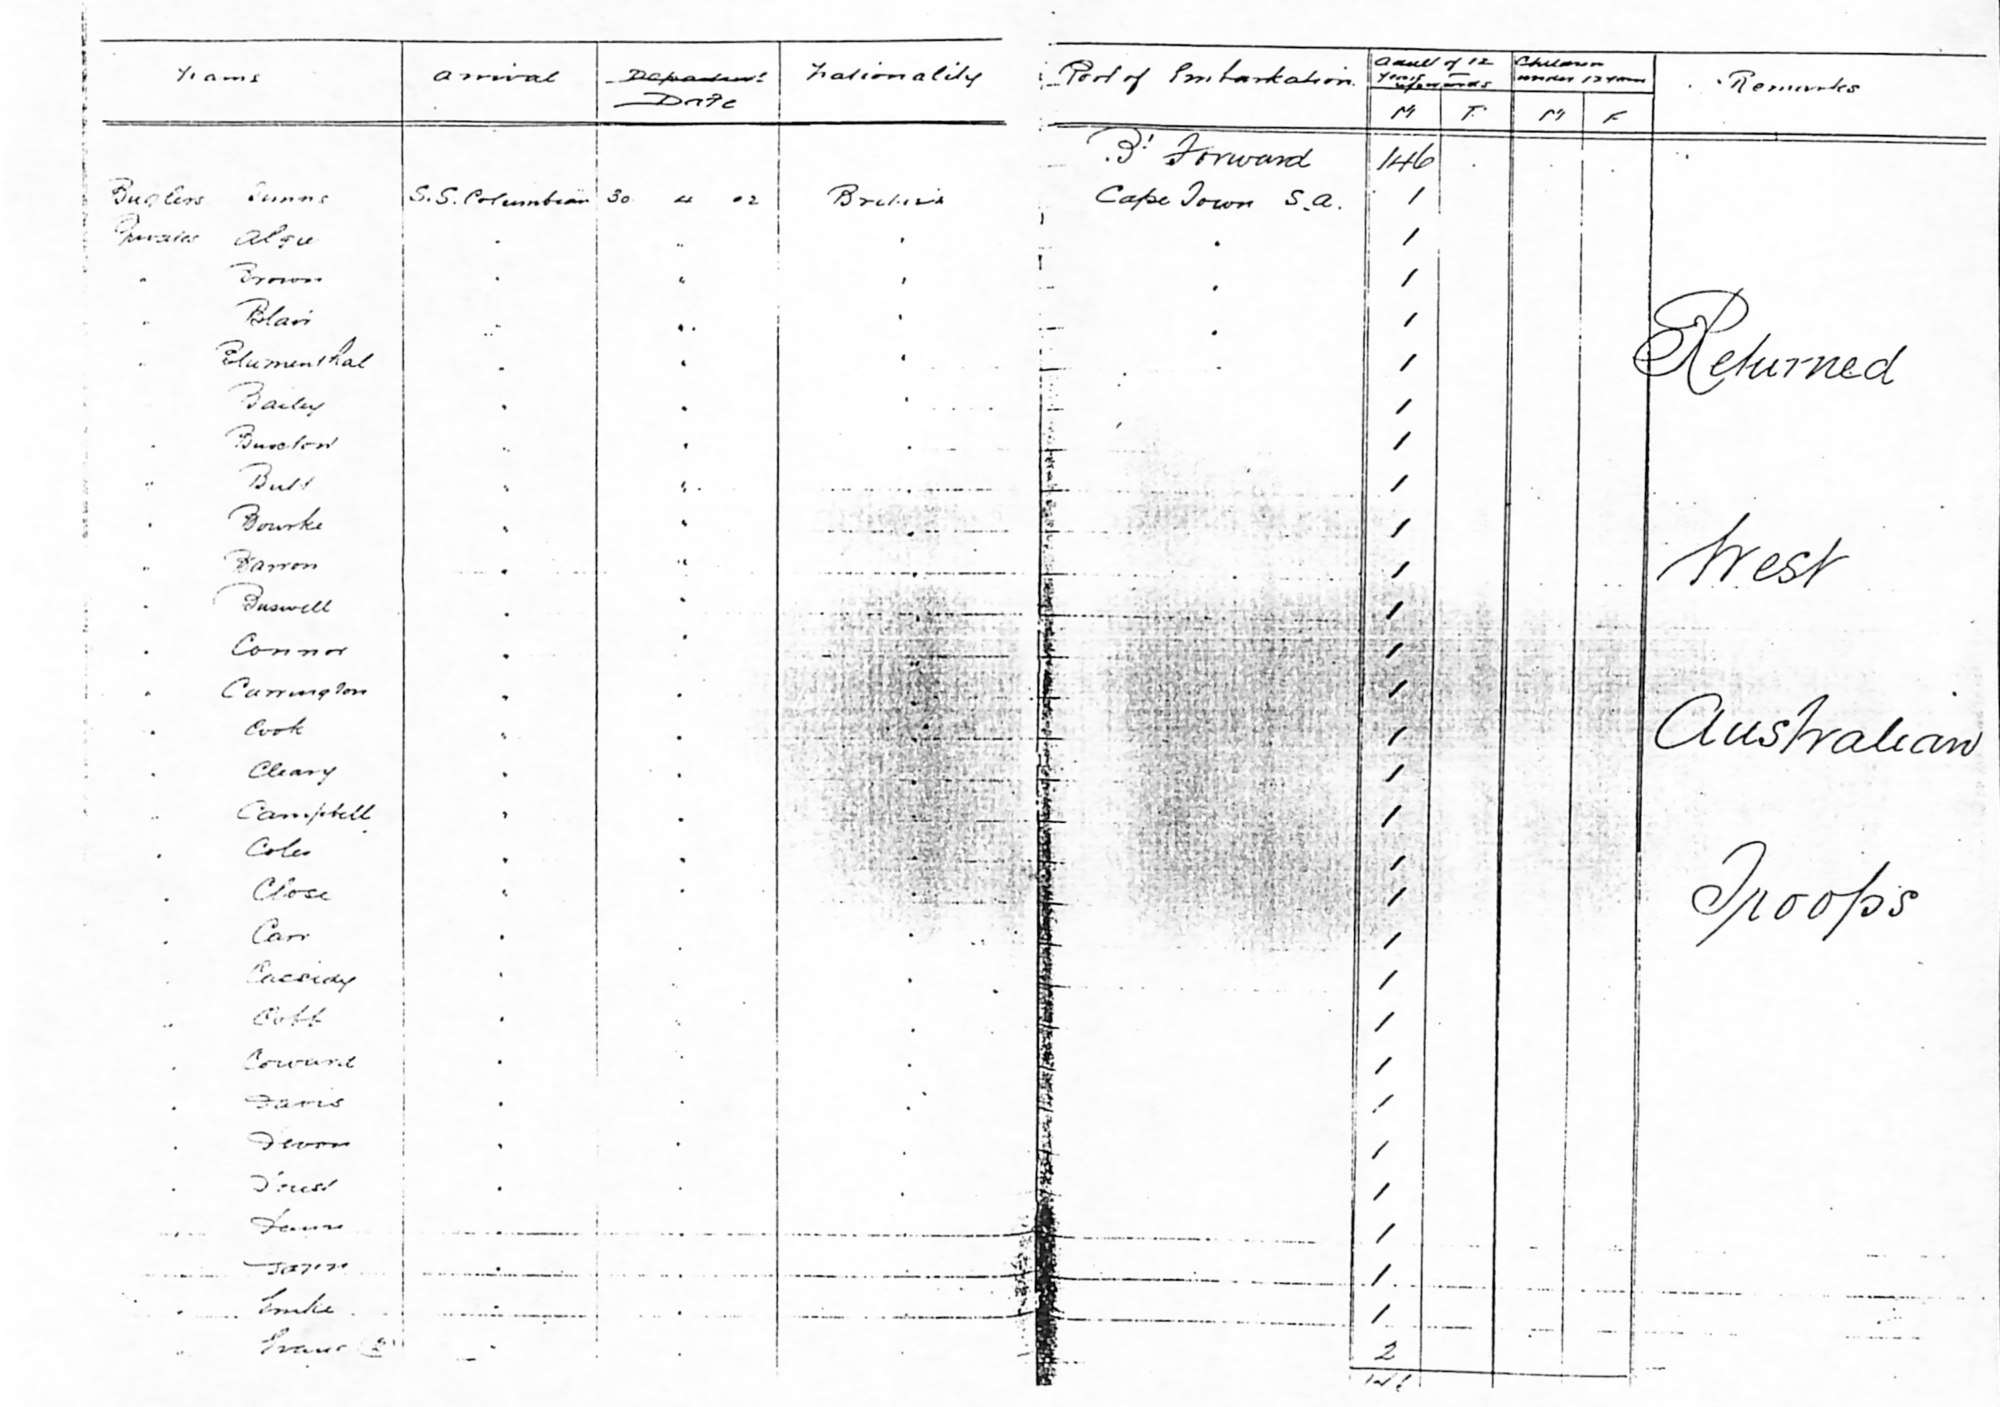 Name Arrival Departure Date Nationality Port of Embarkation Adult of 12 Years upwards M F Children under 12 years M F Remarks
Bt Forward 146
Buglers S.S. Columbian 30 4 02 British Cape Town S.A. 1
Privates Algie " " " " 1
" Brown " " " " 1
" Blair " " " " 1
" Blumenthal " " " " 1
Returned
Bailey " " " 1
" Buxton " " " 1
" Butt " " " 1
" Bourke " " " 1
West
" Barron " " " 1
" Buswell " " " 1
" Connor " " " 1
" Carrington " " " 1
" Cook " " " 1
Australian
" Cleary " " " 1
" Campbell " " " 1
" Coles " " " 1
" Close " " " 1
Troops
" Carr " " " 1
" Cassidy " " " 1
" Cobb " " " 1
" Coward " " " 1
" Davis " " " 1
" Devon " " " 1
" " " " 1
" Dunn " " " 1
" " 1
" " " 1
" Evans (2) " " 2